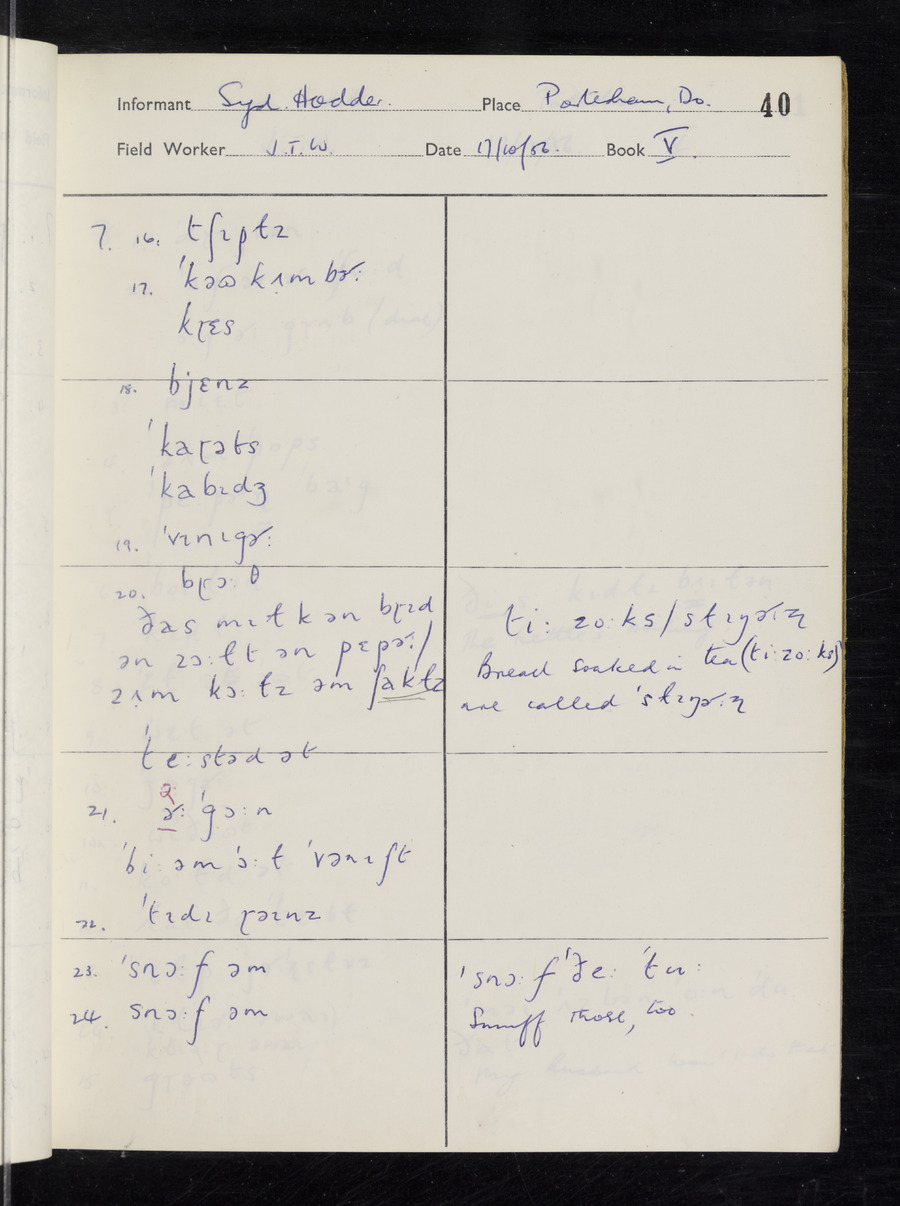 Informant Syd. Hodder. Place Portesham, Do. 40
Field Worker J.T.W. Date 17/10/56. Book V.
7. 16. tʃɪptz
17. ˈkəɷkʌ̣mbɚː
kɽɛs
18. bjɛnz
ˈkaɽəts
ˈkabɪdʒ
19. ˈvɪnɪgɚː
20. bɽɔːθ
ðas mɪt kən bɽɛd
ən zɔːɫt ən pɛpɚː/
zʌ̣m kɔːɫz əm ʃaktz
ˈteːstəd ət
21. ɚː ˈgɔːn
ˈbiː əm ˈɔːɫ ˈvanɪʃt
22. ˈtɪdɪ ɽəɪnz
23. ˈsnɔːf əm
24. snɔːf əm
tiː zoːks/stɪŋɚːz
Bread soaked in tea (tiː zoːks)
are called ˈstɪŋɚːz
ˈsnɔːf ˈðeː ˈtuː
Snuff those, too.